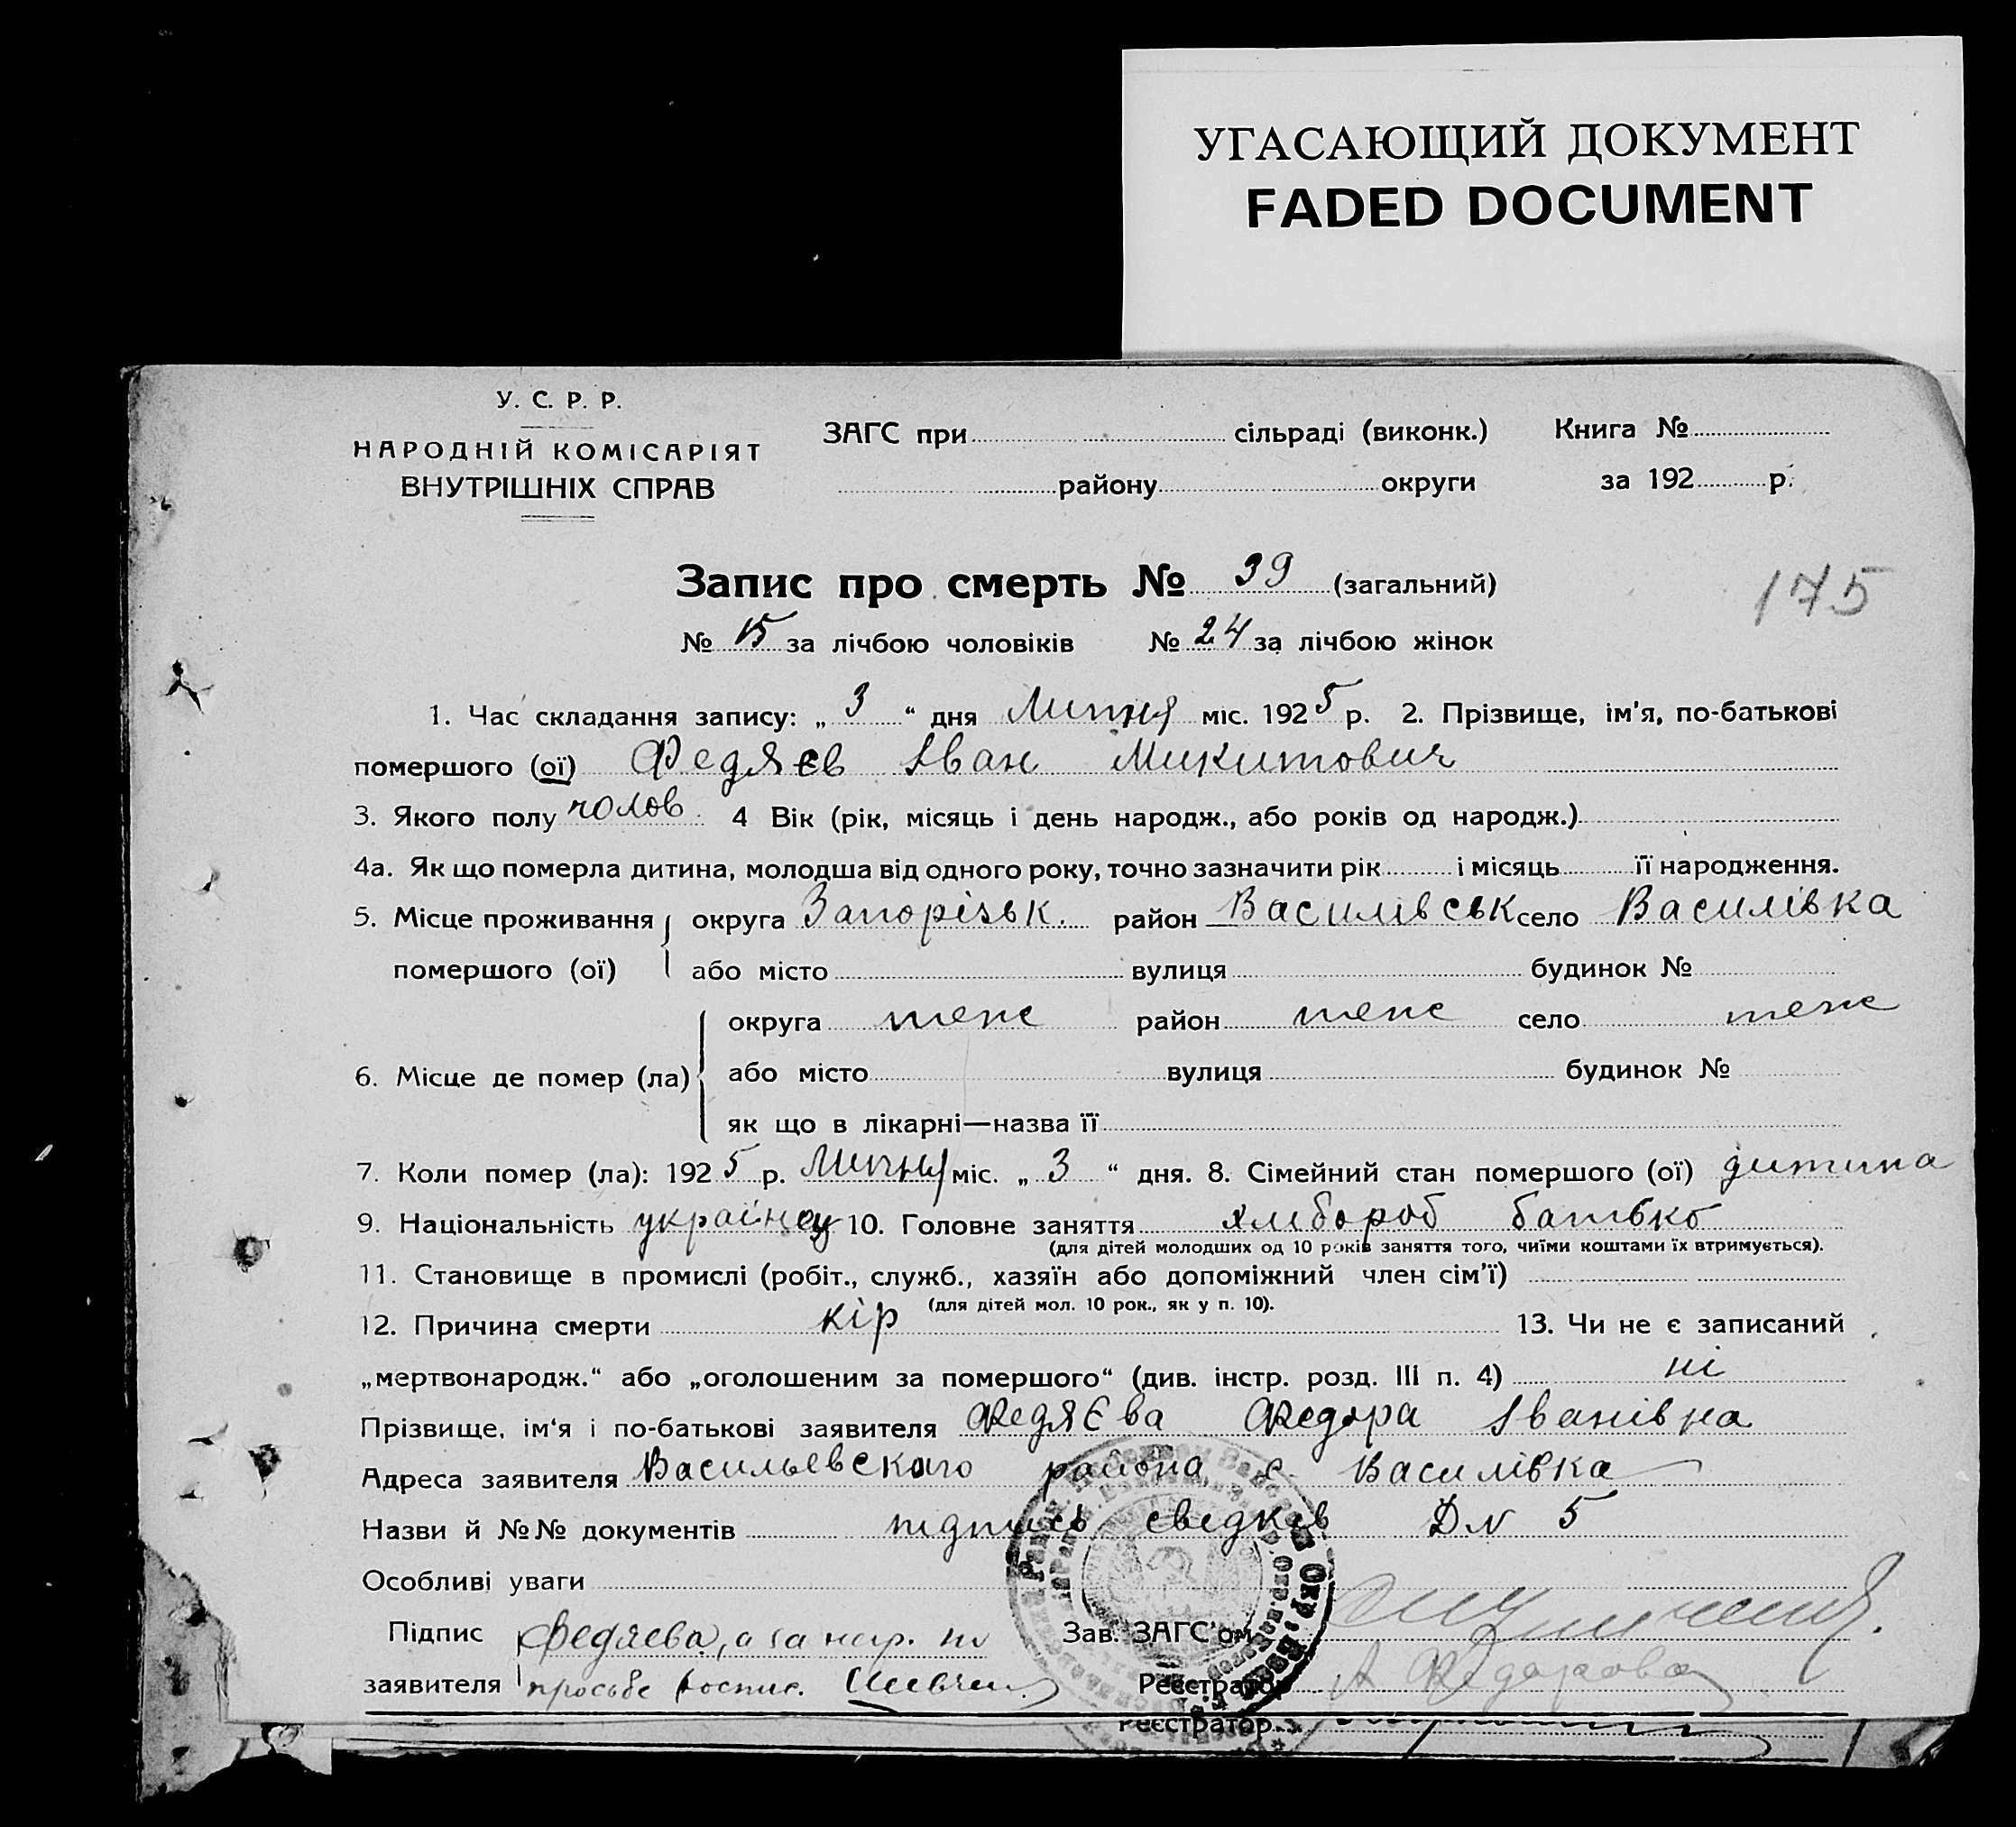 УГАСАЮЩИЙ ДОКУМЕНТ
FADED DOCUMENT
У. С. Р. Р.
НАРОДНІЙ КОМІСАРІЯТ
ВНУТРІШНІХ СПРАВ
ЗАГС при сільраді (виконк.) Книга №
району округи за 192 р.
Запис про смерть № 39 (загальний)
175
№ 15 за лічбою чоловіків № 24 за лічбою жінок
1. Час складання запису: „ 3 “ дня Липня міс. 1925 р. 2. Прізвище, ім'я, по-батькові
помершого (ої) Федяєв Іван Микитович
3. Якого полу чолов. 4 Вік (рік, місяць і день народж., або років од народж.)
4а. Як що померла дитина, молодша від одного року, точно зазначити рік і місяць її народження.
5. Місце проживання округа Запорізьк. район Василівськ село Василівка
помершого (ої) або місто вулиця будинок №
округа теж район теж село теж
6. Місце де помер (ла) або місто вулиця будинок №
як що в лікарні—назва її
7. Коли помер (ла): 1925 р. Липня міс. „ 3 “ дня. 8. Сімейний стан помершого (ої) дитина
9. Національність українец 10. Головне заняття хлібороб батько
(для дітей молодших од 10 років заняття того, чиїми коштами їх втримується).
11. Становище в промислі (робіт., служб., хазяїн або допоміжний член сім'ї)
(для дітей мол. 10 рок., як у п. 10).
12. Причина смерти кір 13. Чи не є записаний
„мертвонародж.“ або „оголошеним за помершого“ (див. інстр. розд. III п. 4) ні
Прізвище, ім'я і по-батькові заявителя Федяєва Федора Іванівна
Адреса заявителя Васильевского района с. Василівка
Назви й №№ документів підпись свідків Д N 5
Особливі уваги
Підпис Федяева, а за негр. по Зав. ЗАГС'ом
заявителя просьбе роспис. Реєстратор А Федорова
Реєстратор